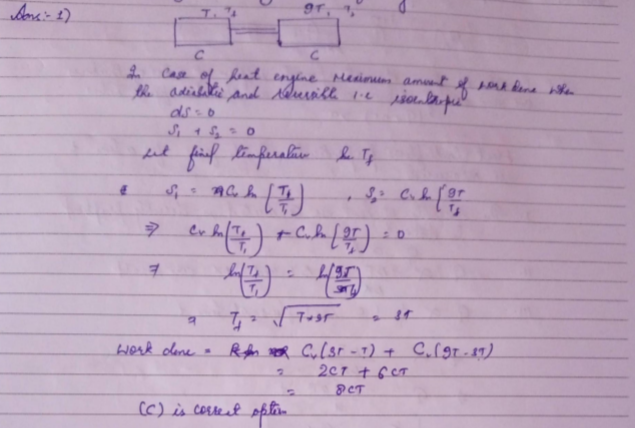 Ans:- 1)
T, T_f 9T, T_f
C C
In case of heat engine maximum amount of work done when
the adiabatic and reversible i.e isentropic
ds = 0
S_1 + S_2 = 0
Let final temperature be T_f
S_1 = C_v ln [T_f/T_1) , S_2 = C_v ln [9T/T_f
⇒ C_v ln(T_f/T_1) + C_v ln [9T/T_f) = 0
⇒ ln(T_f/T_1) = ln(9T/T_f)
T_f = √T×9T = 3T
Work done = C_v(3T-T) + C_v(9T-3T)
= 2CT + 6CT
= 8CT
(C) is correct option